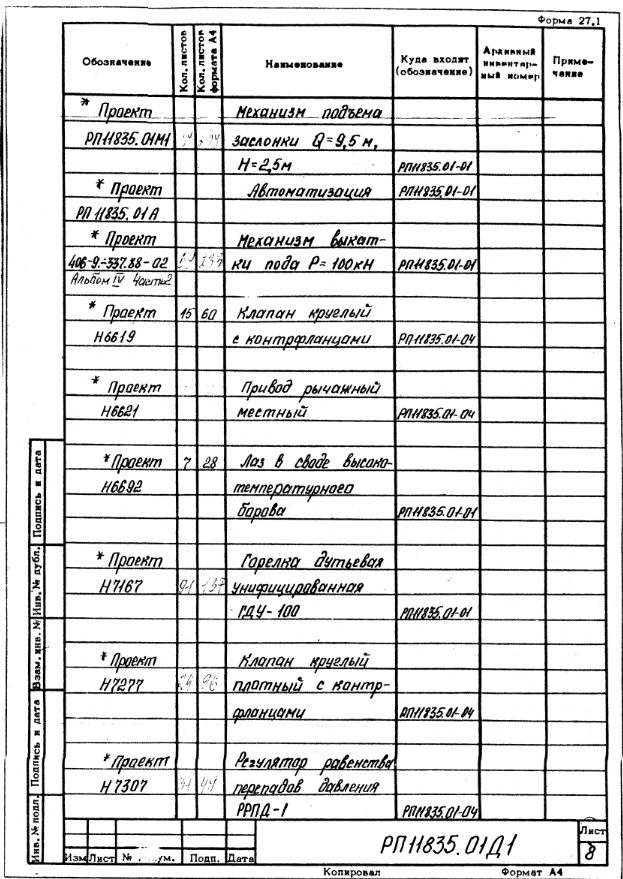 Форма 27.1
Обозначение Кол. листов Кол. листов формата А4 Наименование Куда входит (обозначение) Архивный инвентарный номер Примечание
* Проект Механизм подъема
РП11835.01М1 заслонки Q=9,5 м,
Н=2,5м РП11835.01-01
* Проект Автоматизация РП11835.01-01
РП 11835.01А
* Проект Механизм выкат-
406-9-337.88-02 ки пода Р=100кН РП11835.01-01
Альбом IV Часть 2
* Проект 15 60 Клапан круглый
Н6619 с контрфланцами РП11835.01-04
* Проект Привод рычажный
Н6621 местный РП11835.01-04
* Проект 7 28 Лаз в своде высоко-
Н6692 температурного
борова РП11835.01-01
* Проект Горелка дутьевая
Н7167 унифицированная
ГДУ-100 РП11835.01-01
* Проект Клапан круглый
Н7277 96 платный с контр-
фланцами РП11835.01-04
* Проект Регулятор равенства
Н7307 перепадов давления
РРПД-1 РП11835.01-04
Подпись и дата
Инв. № дубл.
Взам. инв. №
Подпись и дата
Инв. № подл.
РП11835.01Д1 Лист
8
Изм Лист № ум. Подп. Дата
Копировал Формат А4